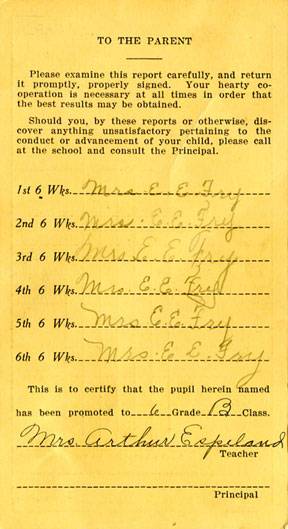 TO THE PARENT
Please examine this report carefully, and return
it promptly, properly signed. Your hearty co-
operation is necessary at all times in order that
the best results may be obtained.
Should you, by these reports or otherwise, dis-
cover anything unsatisfactory pertaining to the
conduct or advancement of your child, please call
at the school and consult the Principal.
1st 6 Wks. Mrs E. E. Fry
2nd 6 Wks. Mrs. E. E. Fry
3rd 6 Wks. Mrs E E Fry
4th 6 Wks. Mrs. E. E. Fry
5th 6 Wks. Mrs E. E. Fry
6th 6 Wks. Mrs. E. E. Fry
This is to certify that the pupil herein named
has been promoted to 6 Grade B Class.
Mrs. Arthur Espeland
Teacher
Principal